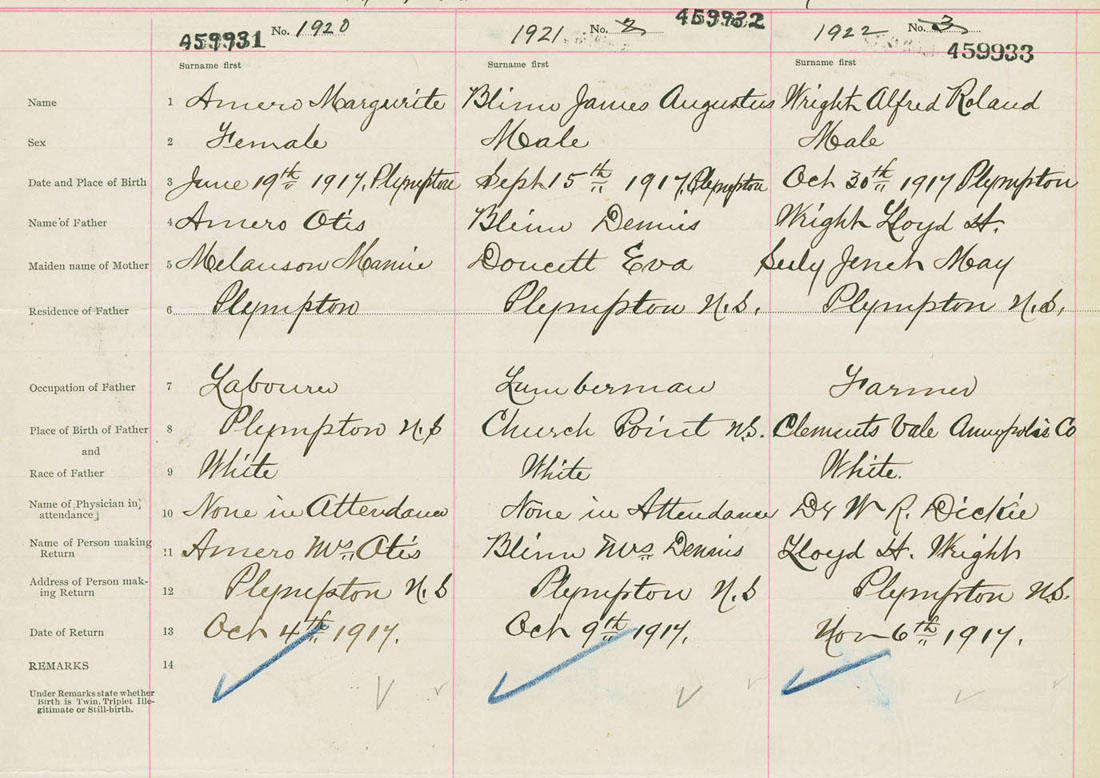 459931 No. 1920 1921 No. 2 459932 1922 No. 3 459933
Surname first Surname first Surname first
Name 1 Amero Margurite Blinn James Augustus Wright Alfred Roland
Sex 2 Female Male Male
Date and Place of Birth 3 June 19th 1917, Plympton Sept 15th 1917, Plympton Oct 30th 1917 Plympton
Name of Father 4 Amero Otis Blinn Dennis Wright Lloyd H.
Maiden name of Mother 5 Melanson Mamie Doucett Eva May
Residence of Father 6 Plympton Plympton N.S. Plympton N.S.
Occupation of Father 7 Labourer Lumberman Farmer
Place of Birth of Father 8 Plympton N.S Church Point N.S. Clements Vale Annapolis Co
and
Race of Father 9 White White White.
Name of Physician in
attendance 10 None in Attendance None in Attendance Dr W R. Dickie
Name of Person making
Return 11 Amero Mrs Otis Blinn Mrs Dennis Lloyd H. Wright
Address of Person mak-
ing Return 12 Plympton N.S Plympton N.S Plympton N.S.
Date of Return 13 Oct 4th 1917. Oct 9th 1917. Nov 6th 1917.
REMARKS 14
Under Remarks state whether
Birth is Twin, Triplet Ille-
gitimate or Still-birth.